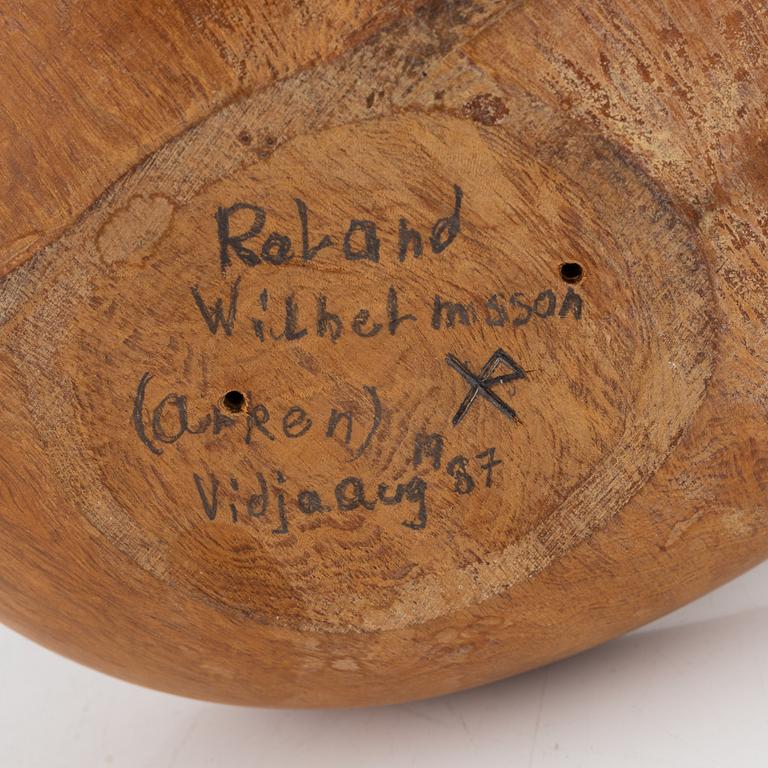 Roland
Wilhelmsson
(arken)
Vidja aug 1987